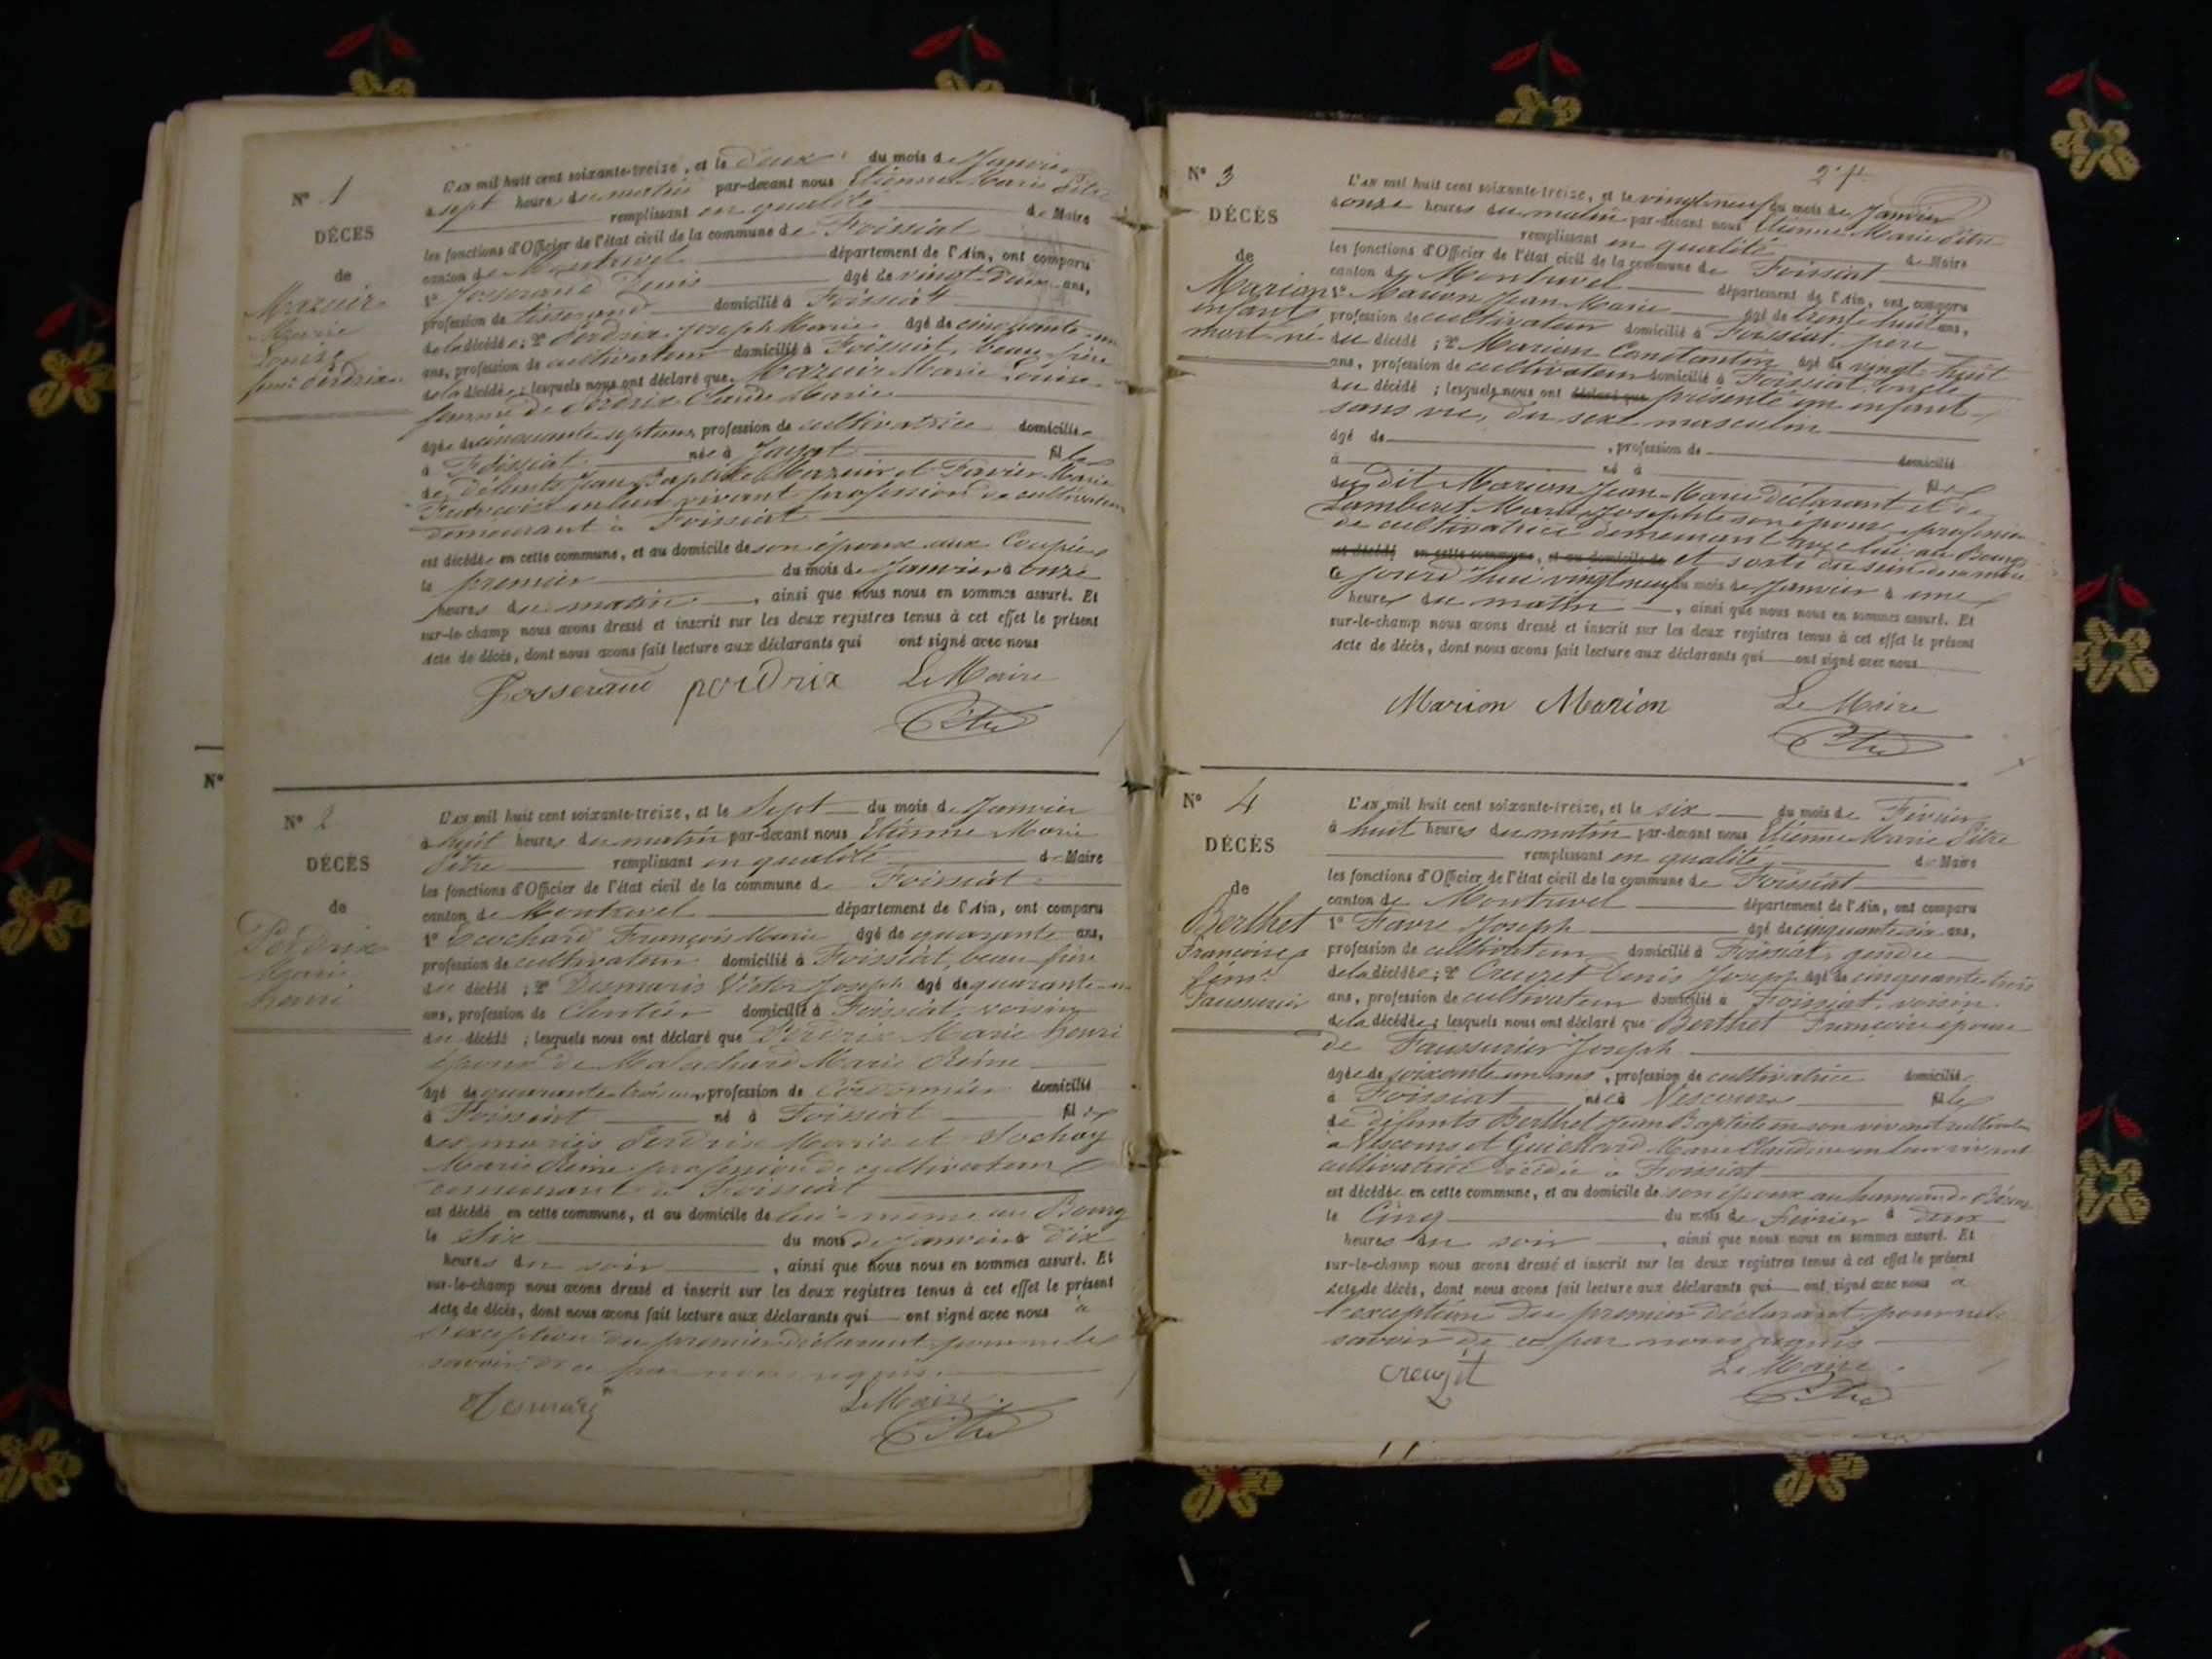 N° 1
DÉCÈS
de
Mazuir
Marie
Louise
femme Perdrix
L'AN mil huit cent soixante-treize, et le deux du mois de Janvier
à sept heures du matin par-devant nous Etienne Marie Pitre
remplissant en qualité de Maire
les fonctions d'Officier de l'état civil de la commune de Foissiat
canton de Montrevel département de l'Ain, ont comparu
1° Josserand Denis âgé de vingt-deux ans,
profession de tisserand domicilié à Foissiat
de la décédée ; 2° Perdrix Joseph Marie âgé de cinquante-un
ans, profession de cultivateur domicilié à Foissiat, beau-frère
de la décédée ; lesquels nous ont déclaré que Mazuir Marie Louise
femme de Perdrix Claude Marie
âgée de cinquante sept ans, profession de cultivatrice domiciliée
à Foissiat née à Jayat fille
de défunts Jean Baptiste Mazuir et Favier Marie
Françoise en leur vivant profession de cultivateurs
demeurant à Foissiat
est décédée en cette commune, et au domicile de son époux aux Coupées
le premier du mois de Janvier à onze
heures du matin, ainsi que nous nous en sommes assuré. Et
sur-le-champ nous avons dressé et inscrit sur les deux registres tenus à cet effet le présent
Acte de décès, dont nous avons fait lecture aux déclarants qui ont signé avec nous
Josserand perdrix Le Maire
Pitre
N°
N° 2
DÉCÈS
de
Perdrix
Marie
henri
L'AN mil huit cent soixante-treize, et le Sept du mois de Janvier
à huit heures du matin par-devant nous Etienne Marie
Pitre remplissant en qualité de Maire
les fonctions d'Officier de l'état civil de la commune de Foissiat
canton de Montrevel département de l'Ain, ont comparu
1° Ecochard François Marie âgé de quarante ans,
profession de cultivateur domicilié à Foissiat, beau-frère
du décédé ; 2° Desmaris Victor Joseph âgé de quarante-un
ans, profession de Cloutier domicilié à Foissiat, voisin
du décédé ; lesquels nous ont déclaré que Perdrix Marie henri
époux de Malachard Marie Reine
âgé de quarante-trois ans, profession de Cordonnier domicilié
à Foissiat né à Foissiat fils
des mariés Perdrix Marie et Sochay
Marie Reine profession de cultivateurs
demeurant à Foissiat
est décédé en cette commune, et au domicile de lui-même au Bourg
le Six du mois de Janvier à dix
heures du soir, ainsi que nous nous en sommes assuré. Et
sur-le-champ nous avons dressé et inscrit sur les deux registres tenus à cet effet le présent
Acte de décès, dont nous avons fait lecture aux déclarants qui ont signé avec nous à
l'exception du premier déclarant pour ne le
savoir de ce par nous requis.
Desmaris Le Maire
Pitre
N° 3
DÉCÈS
de
Marion
enfant
mort-né
L'AN mil huit cent soixante-treize, et le vingt neuf du mois de Janvier
à onze heures du matin par-devant nous Etienne Marie Pitre
remplissant en qualité de Maire
les fonctions d'Officier de l'état civil de la commune de Foissiat
canton de Montrevel département de l'Ain, ont comparu
1° Marion Jean Marie âgé de trente huit ans,
profession de cultivateur domicilié à Foissiat, père
du décédé ; 2° Marion Constantin âgé de vingt-huit
ans, profession de cultivateur domicilié à Foissiat oncle
du décédé ; lesquels nous ont déclaré que présenté un enfant
sans vie, du sexe masculin
âgé de , profession de domicilié
à né à fils
du dit Marion Jean-Marie déclarant et de
Lamberet Marie Josephte son épouse, profession
de cultivatrice demeurant avec lui au Bourg
est décédé en cette commune, et au domicile de et sorti du sein de sa mère
Ce jourd'hui vingt neuf du mois de Janvier à une
heure du matin, ainsi que nous nous en sommes assuré. Et
sur-le-champ nous avons dressé et inscrit sur les deux registres tenus à cet effet le présent
Acte de décès, dont nous avons fait lecture aux déclarants qui ont signé avec nous
Marion Marion Le Maire
Pitre
N° 4
DÉCÈS
de
Berthet
Françoise
fem.
Faussurier
L'AN mil huit cent soixante-treize, et le six du mois de Février
à huit heures du matin par-devant nous Etienne Marie Pitre
remplissant en qualité de Maire
les fonctions d'Officier de l'état civil de la commune de Foissiat
canton de Montrevel département de l'Ain, ont comparu
1° Favre Joseph âgé de cinquante-six ans,
profession de cultivateur domicilié à Foissiat, gendre
de la décédée ; 2° Creuzet Denis Joseph âgé de cinquante-trois
ans, profession de cultivateur domicilié à Foissiat, voisin
de la décédée ; lesquels nous ont déclaré que Berthet Françoise épouse
de Faussurier Joseph
âgée de soixante un ans, profession de cultivatrice domiciliée
à Foissiat née à Vescours fille
de défunts Berthet Jean Baptiste en son vivant cultivateur
à Vescours et Guichard Marie Claudine en leur vivant
cultivatrice décédée à Foissiat
est décédée en cette commune, et au domicile de son époux au hameau de
le Cinq du mois de février à deux
heures du soir, ainsi que nous nous en sommes assuré. Et
sur-le-champ nous avons dressé et inscrit sur les deux registres tenus à cet effet le présent
Acte de décès, dont nous avons fait lecture aux déclarants qui ont signé avec nous à
l'exception du premier déclarant pour ne le
savoir de ce par nous requis
creuzet Le Maire
Pitre